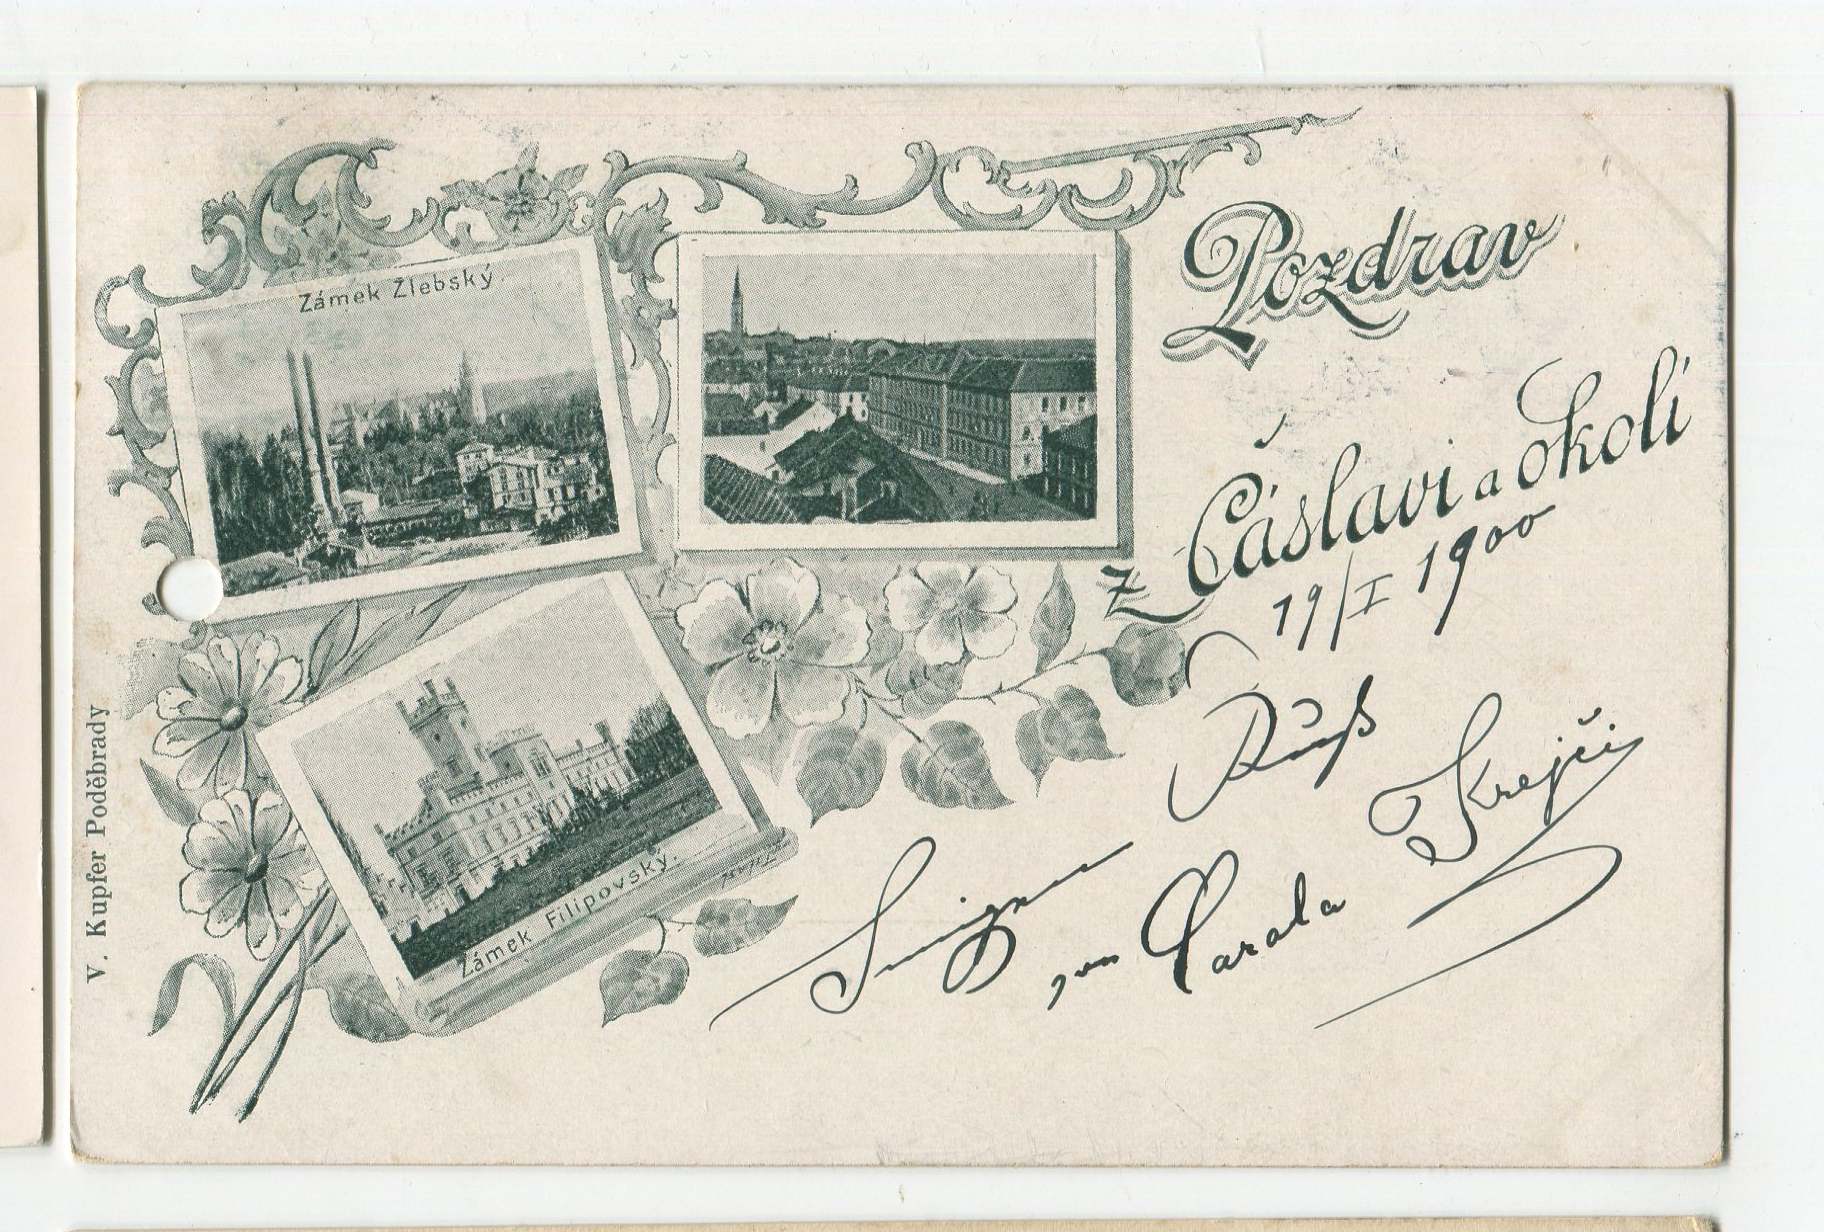 Pozdrav
z Čáslavi a okolí
19/I 1900
Zámek Žlebský.
Zámek Filipovský.
V. Kupfer Poděbrady
von Karola Krejčí